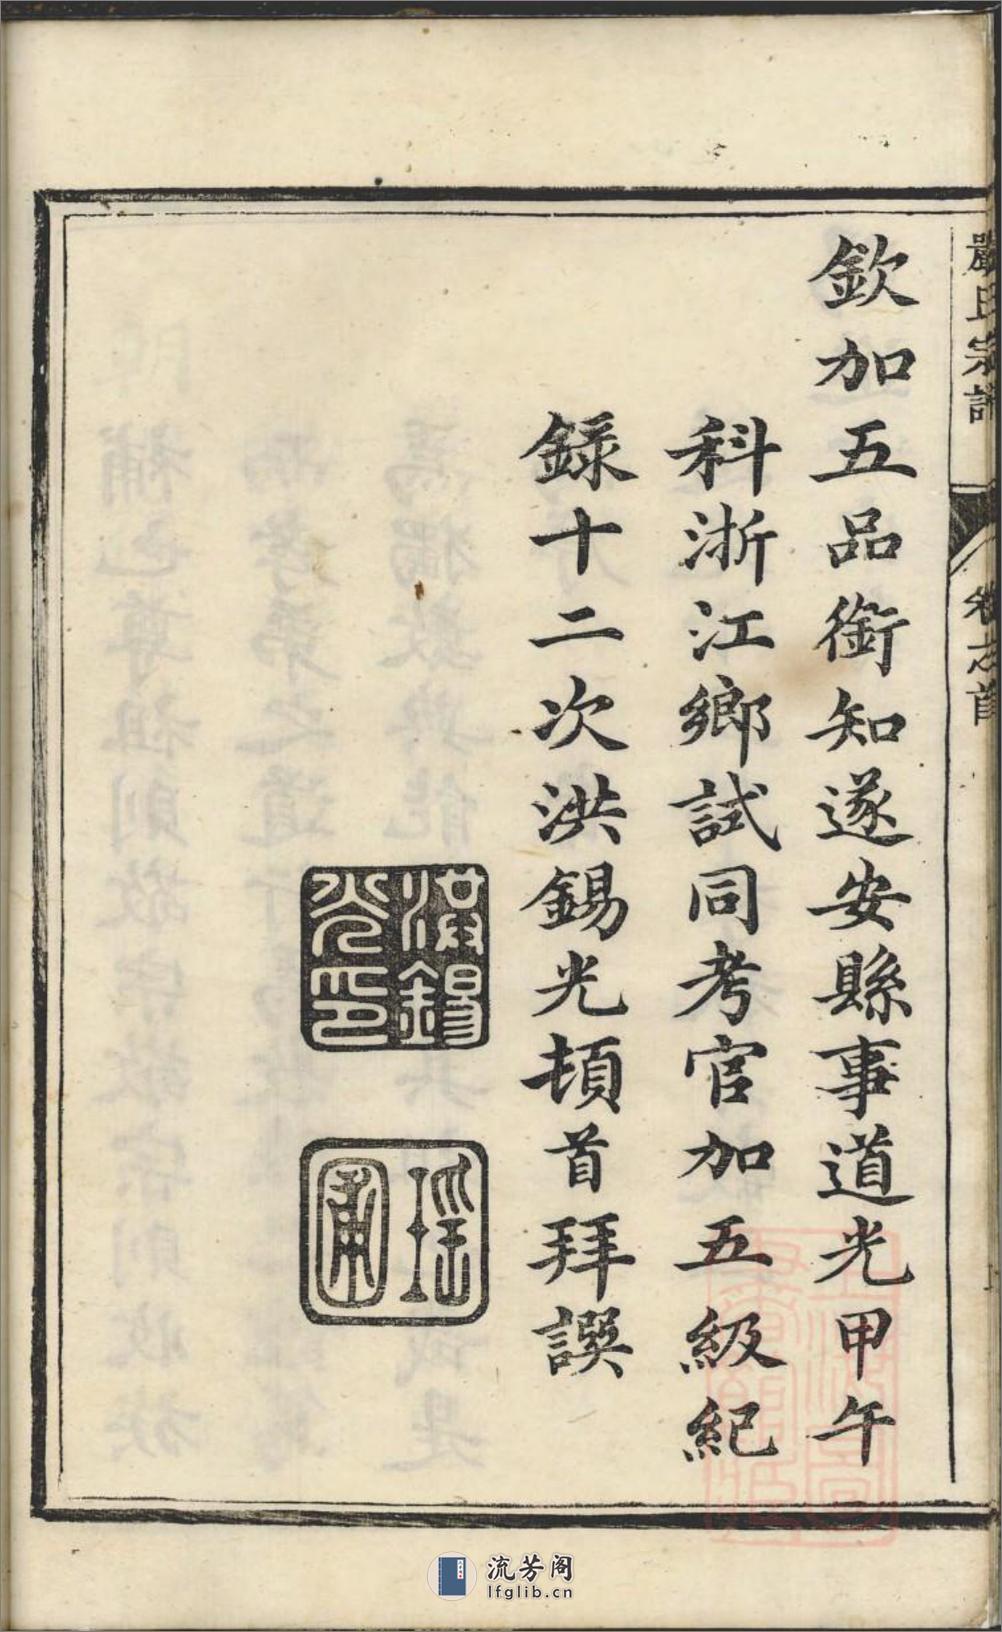 嚴氏宗譜
卷之首
欽加五品銜知遂安縣事道光甲午
科浙江鄉試同考官加五級紀
錄十二次洪錫光頓首拜譔
洪錫光印
瑶圃
流芳阁
lfglib.cn